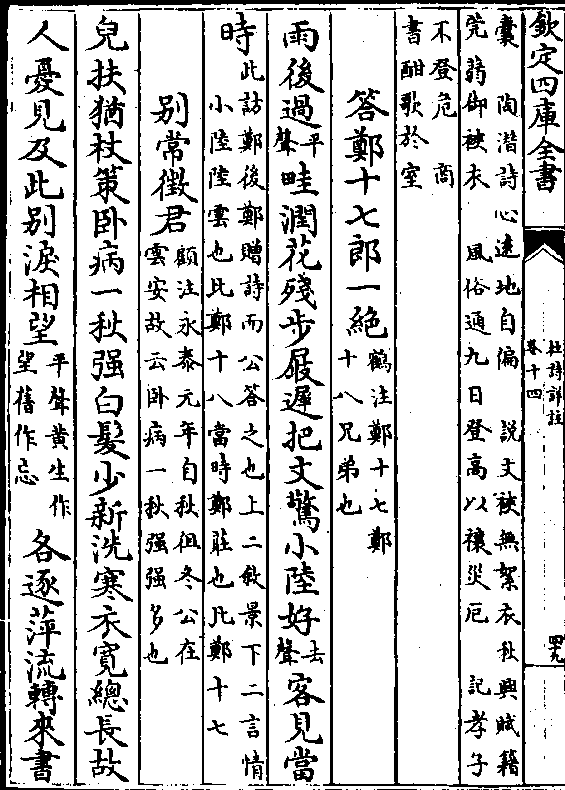 欽定四庫全書
杜詩詳註
卷十四
四九
囊　陶潛詩心遠地自偏　說文裌無絮衣秋興賦籍
莞蒻御裌衣　風俗通九日登高以禳災厄　記孝子
不登危　商
書酣歌於室
答鄭十七郎一絶
鶴注鄭十七鄭
十八兄弟也
雨後過平聲畦潤花殘步屐遲把文驚小陸好去聲客見當
時
此訪鄭後鄭贈詩而公答之也上二敘景下二言情
小陸陸雲也比鄭十八當時鄭莊也比鄭十七
别常徵君
顧注永泰元年自秋徂冬公在
雲安故云卧病一秋强强多也
兒扶猶杖策卧病一秋强白髮少新洗寒衣寛總長故
人憂見及此别淚相望平聲黃生作望舊作忘各逐萍流轉來書